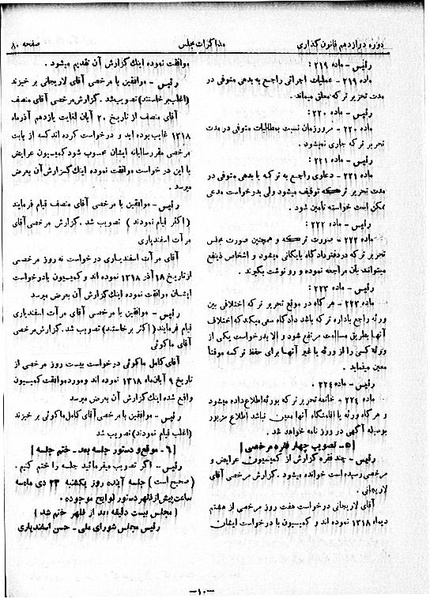 دوره دوازدهم قانون گذاری
مذاکرات مجلس
صفحه ۸۰
رئیس - ماده ۲۱۹:
ماده ۲۱۹ - عملیات اجرائی راجع به بدهی متوفی در
مدت تحریر ترکه معلق میماند.
رئیس - ماده ۲۲۰:
ماده ۲۲۰ - مرور زمان نسبت بمطالبات متوفی در مدت
تحریر ترکه جاری نمیشود.
رئیس - ماده ۲۲۱:
ماده ۲۲۱ - دعاوی راجع به ترکه یا بدهی متوفی در
مدت تحریر ترکه توقیف میشود ولی بدرخواست مدعی
ممکن است خواسته تأمین شود.
رئیس - ماده ۲۲۲:
ماده ۲۲۲ - صورت ترکه و همچنین صورت مجلس
تحریر ترکه در دفتر دادگاه بایگانی میشود و اشخاص ذینفع
میتوانند بآن مراجعه نموده و رونوشت بگیرند.
رئیس - ماده ۲۲۳:
ماده ۲۲۳ - هرگاه در موقع تحریر ترکه اختلافی بین
ورثه راجع باداره ترکه باشد دادگاه سعی میکند که اختلاف
آنها بطریق مسالمت مرتفع شود و الا بدرخواست یکی از
ورثه کسی را از ورثه یا غیر آنها برای حفظ ترکه موقتاً
معین مینماید.
رئیس - ماده ۲۲۴:
ماده ۲۲۴ - خاتمه تحریر ترکه بورثه اطلاع داده میشود
و هرگاه ورثه یا اقامتگاه آنها معین نباشد اطلاع مزبور
بوسیله آگهی در روزنامه خواهد شد.
[۵ - تصویب چهار فقره مرخصی]
رئیس - چند فقره گزارش از کمیسیون عرایض و
مرخصی رسیده است خوانده میشود. گزارش مرخصی آقای
لاریجانی.
آقای لاریجانی درخواست هفت روز مرخصی از هشتم
دیماه ۱۳۱۸ نموده اند و کمیسیون با درخواست ایشان
موافقت نموده اینک گزارش آن تقدیم میشود.
رئیس - موافقین با مرخصی آقای لاریجانی برخیزند
(اغلب برخاستند) تصویب شد. گزارش مرخصی آقای منصف
آقای منصف از تاریخ ۲۰ آبان لغایت یازدهم آذرماه
۱۳۱۸ غایب بوده اند و درخواست کرده اند که از بابت
مرخصی مقرر سالیانه ایشان محسوب شود کمیسیون عرایض
با این درخواست موافقت نموده اینک گزارش آن بعرض
میرسد.
رئیس - موافقین با مرخصی آقای منصف قیام فرمایند
(اکثر قیام نمودند) تصویب شد. گزارش مرخصی آقای
مرآت اسفندیاری
آقای مرآت اسفندیاری درخواست نه روز مرخصی
از تاریخ ۱۸ آذر ۱۳۱۸ نموده اند و کمیسیون با درخواست
ایشان موافقت نموده اینک گزارش آن بعرض میرسد
رئیس - موافقین با مرخصی آقای مرآت اسفندیاری
قیام فرمایند (اکثر برخاستند) تصویب شد. گزارش مرخصی
آقای ماکوئی
آقای کامل ماکوئی درخواست بیست روز مرخصی از
تاریخ ۹ آبان ماه ۱۳۱۸ نموده اند و مورد موافقت کمیسیون
واقع شده اینک گزارش آن بعرض میرسد
رئیس - موافقین با مرخصی آقای کامل ماکوئی برخیزند
(اغلب قیام نمودند) تصویب شد
[۶ - موقع و دستور جلسه بعد - ختم جلسه]
رئیس - اگر تصویب میفرمائید جلسه را ختم کنیم.
(صحیح است) جلسه آینده روز یکشنبه ۲۴ دی ماه سه
ساعت پیش از ظهر دستور لوایح موجوده.
[مجلس بیست دقیقه بعد از ظهر ختم شد]
رئیس مجلس شورای ملی - حسن اسفندیاری
-۱۰-